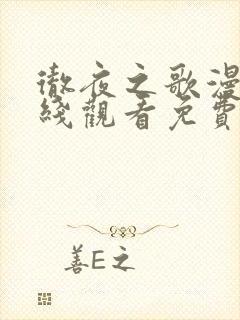 徹夜之歌漫
綫觀看免費
善E之